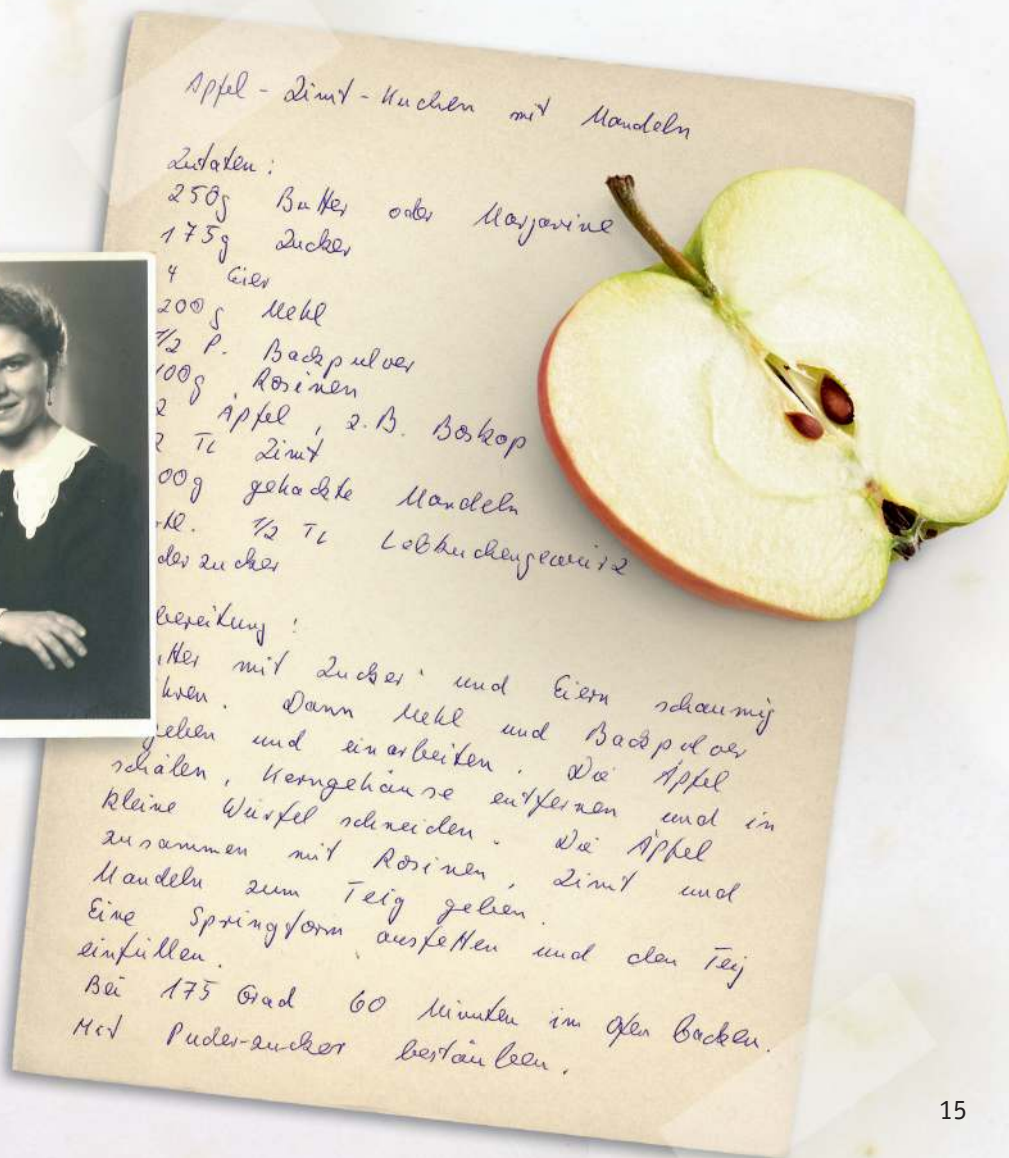 Apfel-Zimt-Kuchen mit Mandeln
Zutaten:
250g Butter oder Margarine
175g Zucker
4 Eier
200g Mehl
1/2 P. Backpulver
100g Rosinen
2 Äpfel, z.B. Boskop
2 TL Zimt
00g gehackte Mandeln
1/2 TL Lebkuchengewürz
derzucker
bereitung:
tter mit Zucker und Eiern schaumig
hren. Dann Mehl und Backpulver
geben und einarbeiten. Die Äpfel
schälen, Kerngehäuse entfernen und in
kleine Würfel schneiden. Die Äpfel
zusammen mit Rosinen, Zimt und
Mandeln zum Teig geben.
Eine Springform ausfetten und den Teig
einfüllen.
Bei 175 Grad 60 Minuten im Ofen backen.
Mit Puder-zucker bestäuben.
15